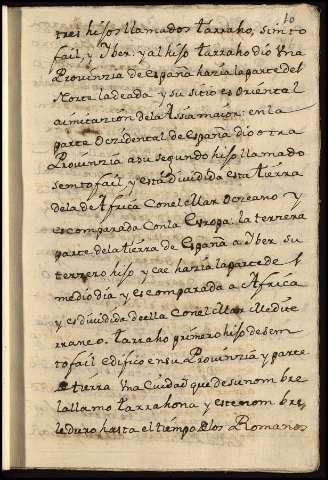 10
tres hijos llamados tarraho, sinto
fail, y Yber: y al hijo tarraho dio Una
Provinzia de España hazia la parte del
Norte ladeada y su sitio es Oriental
a imitazion de la Assia maior: en la
parte Oczidental de España dio otra
Provinzia a su segundo hijo llamado
semtofail y está dividida esta tierra
de la de Africa Con el Mar Oceano y
es comparada Con la Europa: la terzera
parte de la tierra de España a Yber su
terzero hijo y cae hazia la parte de l
medio dia y es comparada a Africa
y es dividida de ella Con el Mar Medite
rraneo. tarraho primero hijo de sem
tofail edifico en su Provinzia y parte
de tierra Una Ciudad que de su nombre
la llamo tarrahona y este nombre
le duro hasta el tiempo de los Romanos